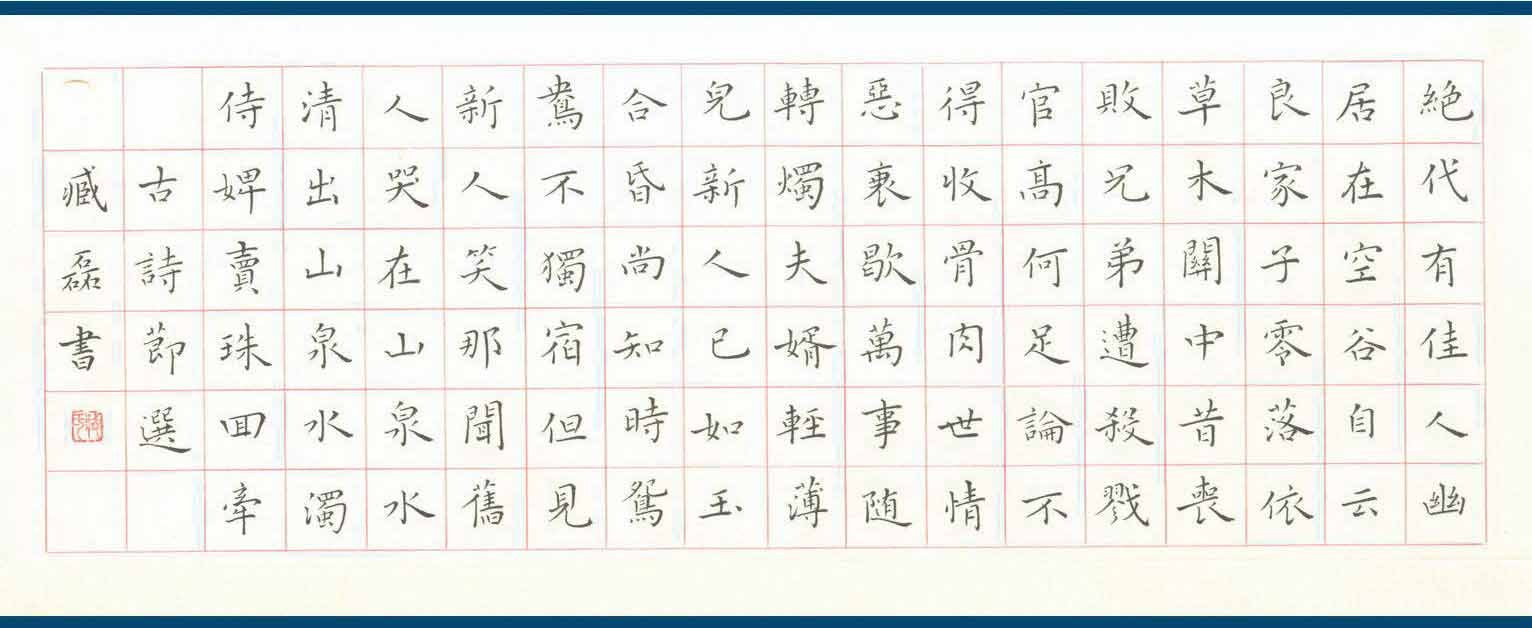 絶代有佳人幽
居在空谷自云
良家子零落依
草木關中昔喪
敗兄弟遭殺戮
官高何足論不
得收骨肉世情
惡衰歇萬事随
轉燭夫婿輕薄
兒新人已如玉
合昏尚知時鴛
鴦不獨宿但見
新人笑那聞舊
人哭在山泉水
清出山泉水濁
侍婢賣珠囬牵
古詩節選
臧磊書